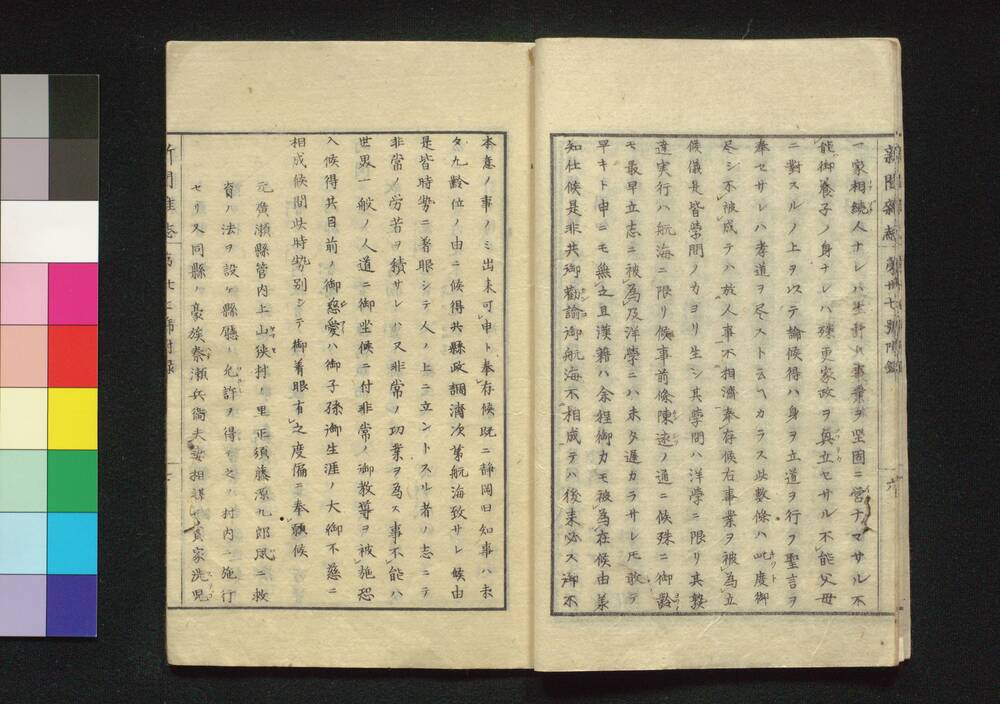 新聞雑誌 第卅七號附録 六
一家相続人ナレハ生計ノ事業ヲ堅固ニ営ナマサル不
能御養子ノ身ナレハ殊更家政ヲ奠立セサル不能父母
ニ對スルノ上ヲ以テ論候得ハ身ヲ立道ヲ行フ聖言ヲ
奉セサレハ孝道ヲ尽ストモ云ヘカラス此數條ハ此度御
尽シ不被成テハ於人事不相濟奉存候右事業ヲ被為立
候儀是皆学問ノカヨリ生シ其学問ハ洋學ニ限リ其教
達実行ハ航海ニ限リ候事前條陳述ノ通ニ候殊ニ御齢
モ最早立志ニ被為及洋學ニハ未タ遅カラサレ𪜈敢テ
早キト申ニモ無之且漢籍ハ余程御力モ被為在候由義
知仕候是非共御勸諭御航海不相成テハ後来必ス御不
本意ノ事ノミ出来可申ト奉存候既ニ静岡旧知事ハ未
タ九齢位ノ由ニ候得共縣政調濟次第航海致サレ候由
是皆時勢ニ着眼シテ人ノ上ニ立ントスル者ノ志ニテ
非常ノ労苦ヲ積サレハ又非常ノ功業ヲ為ス事不能ハ
世界一般ノ人道ニ御坐候ニ付非常ノ御教導ヲ被施恐
入候得共目前ノ御慈愛ハ御子孫御生涯ノ大御不慈ニ
相成候間此時勢別シテ御着眼有之度偏ニ奉願候
元廣瀬縣管内上山狭村ノ里正須藤源九郎夙ニ救
育ノ法ヲ設ケ縣廳ノ允許ヲ得テ之ヲ村内ニ施行
セリ又同縣ノ豪族秦瀬兵衛夫妻相謀テ貧家洗児